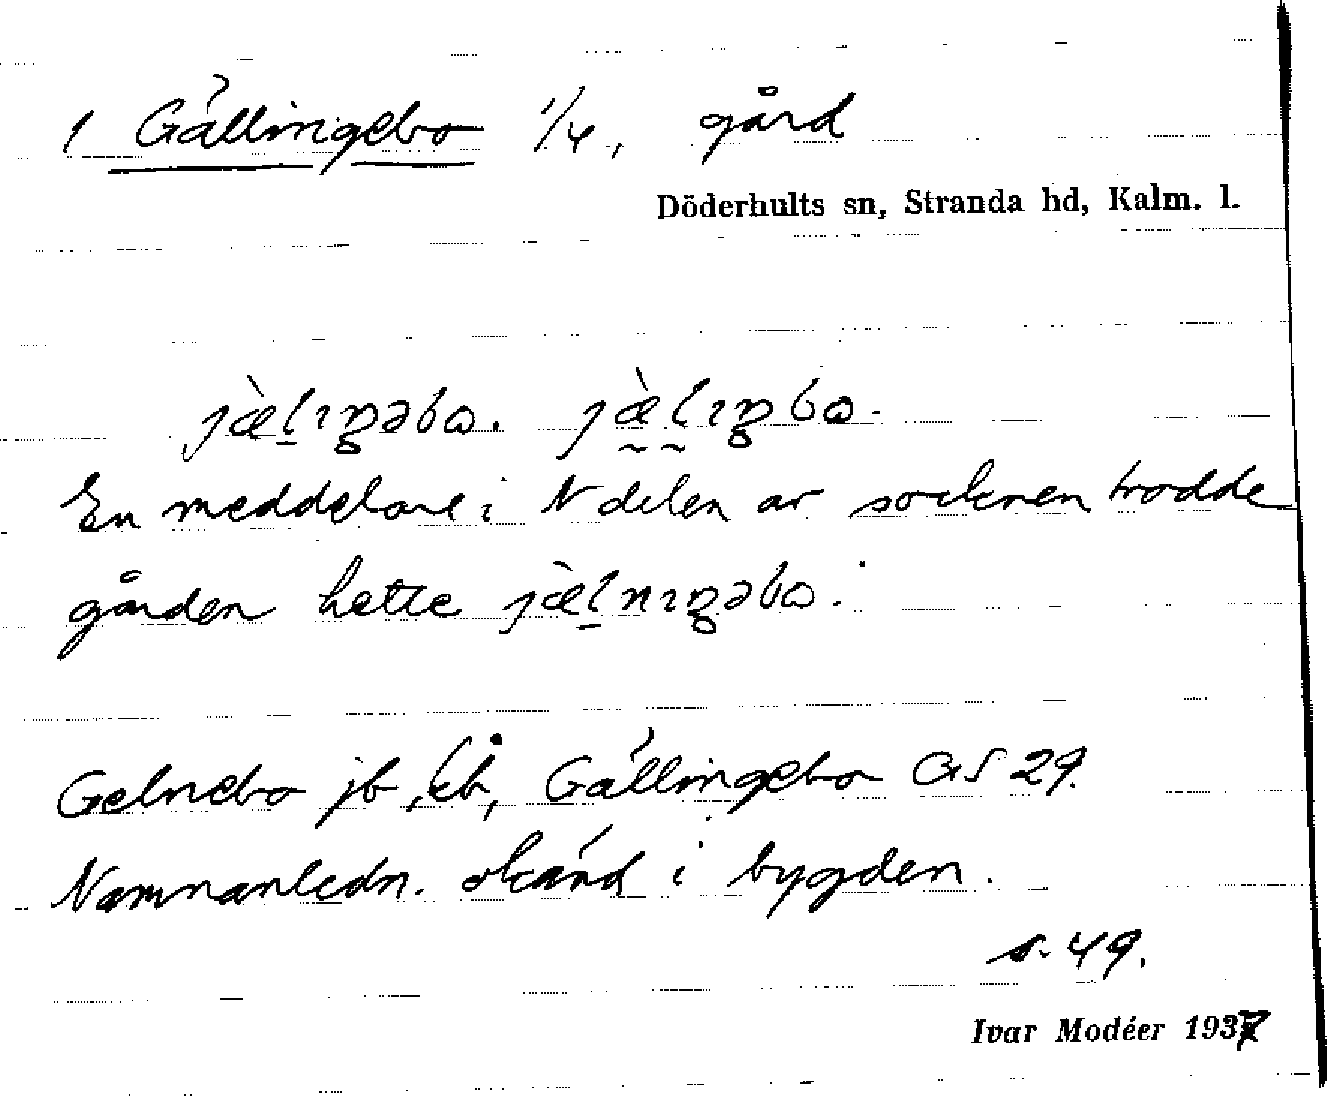 1 Gällingebo 1/4, gård
Döderhults sn, Stranda hd, Kalm. l.
En meddelare i N delen av socknen trodde
gården hette
Gelnebo jb, kb, Gällingebo GS 29.
Namnanledn. okänd i bygden.
s. 49.
Ivar Modéer 1937